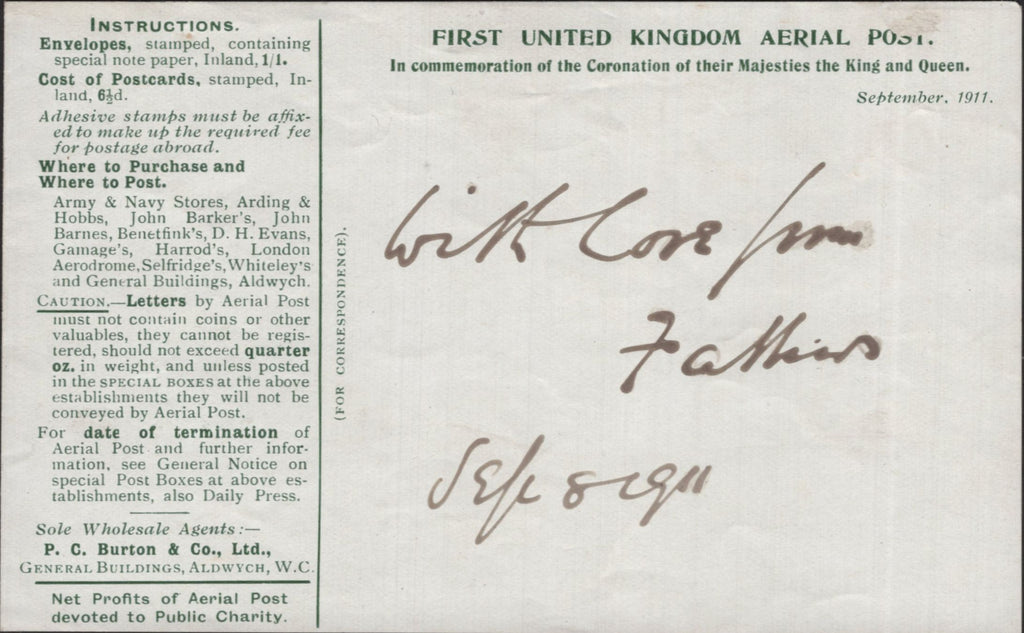 INSTRUCTIONS.
Envelopes, stamped, containing
special note paper, Inland, 1/1.
Cost of Postcards, stamped, In-
land, 6½d.
Adhesive stamps must be affix-
ed to make up the required fee
for postage abroad.
Where to Purchase and
Where to Post.
Army & Navy Stores, Arding &
Hobbs, John Barker's, John
Barnes, Benetfink's, D. H. Evans,
Gamage's, Harrod's, London
Aerodrome, Selfridge's, Whiteley's
and General Buildings, Aldwych.
CAUTION.—Letters by Aerial Post
must not contain coins or other
valuables, they cannot be regis-
tered, should not exceed quarter
oz. in weight, and unless posted
in the SPECIAL BOXES at the above
establishments they will not be
conveyed by Aerial Post.
For date of termination of
Aerial Post and further infor-
mation, see General Notice on
special Post Boxes at above es-
tablishments, also Daily Press.
Sole Wholesale Agents:—
P. C. Burton & Co., Ltd.,
GENERAL BUILDINGS, ALDWYCH, W.C.
Net Profits of Aerial Post
devoted to Public Charity.
(FOR CORRESPONDENCE).
FIRST UNITED KINGDOM AERIAL POST.
In commemoration of the Coronation of their Majesties the King and Queen.
September, 1911.
With Love from
Sep 8 1911